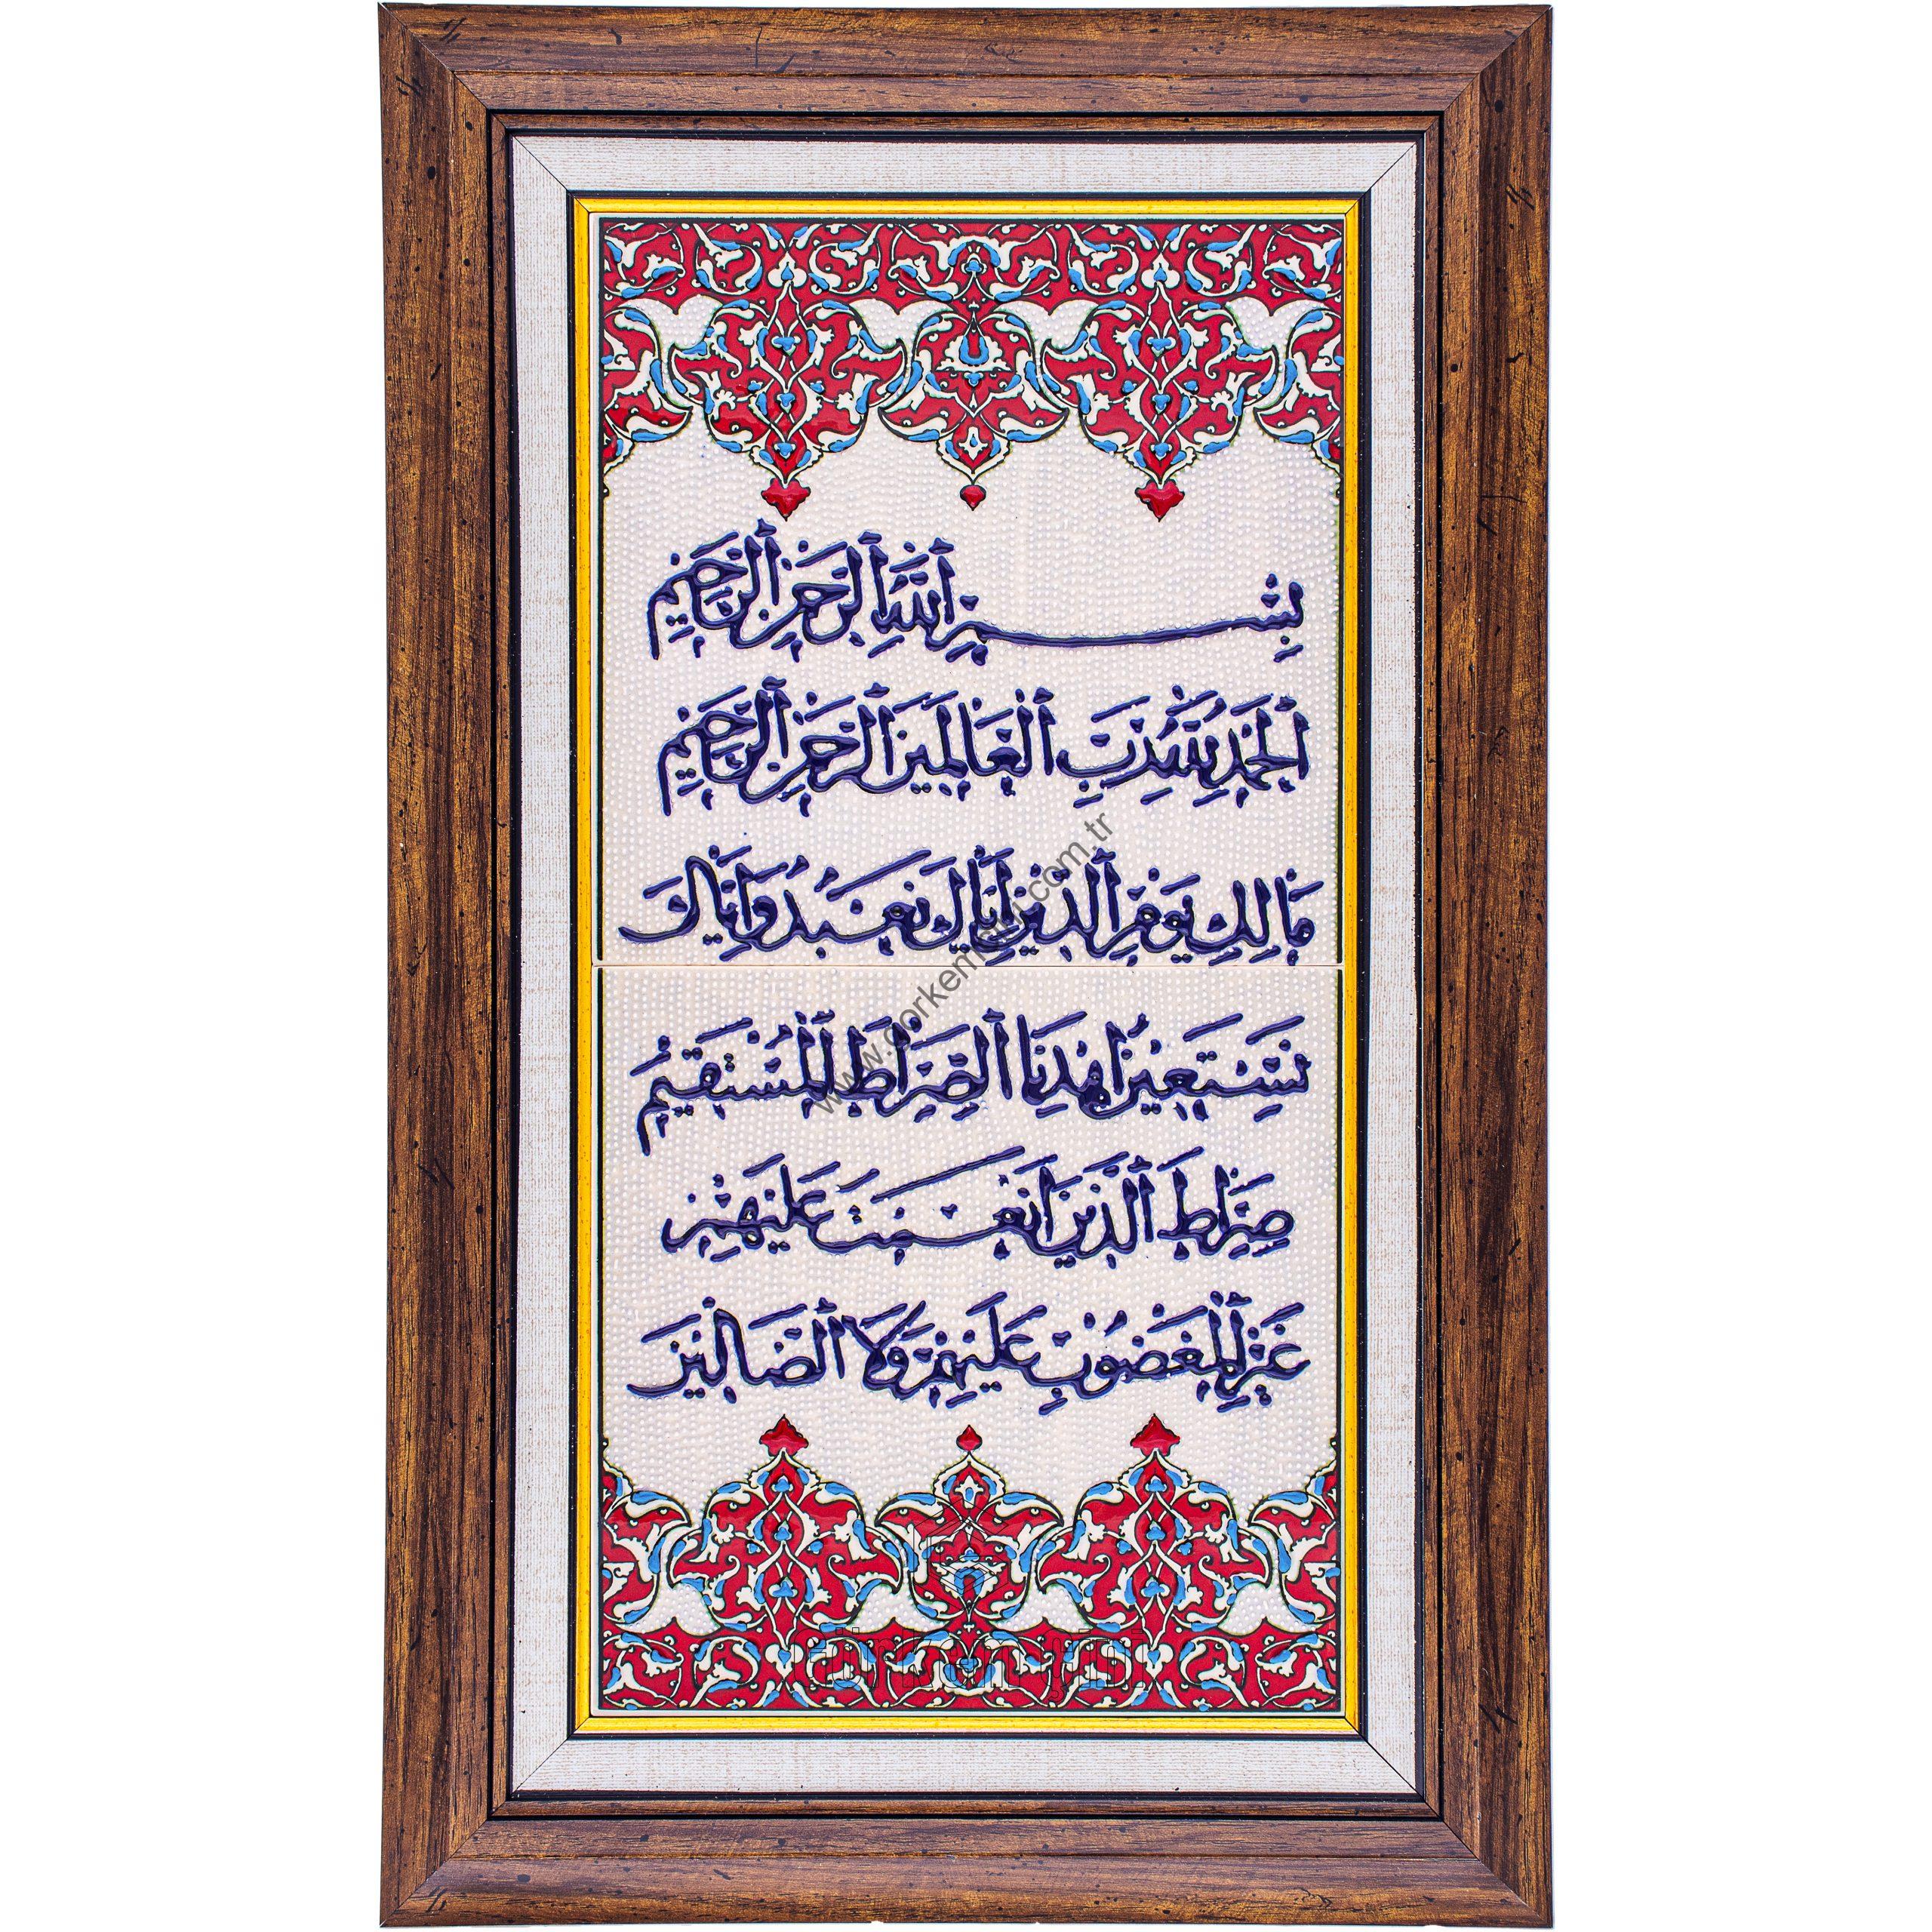 بِسْمِ اللّٰهِ الرَّحْمٰنِ الرَّحِيمِ
اَلْحَمْدُ لِلّٰهِ رَبِّ الْعَالَمِينَ اَلرَّحْمٰنِ الرَّحِيمِ
مَالِكِ يَوْمِ الدِّينِ اِيَّاكَ نَعْبُدُ وَاِيَّاكَ
نَسْتَعِينُ اِهْدِنَا الصِّرَاطَ الْمُسْتَقِيمَ
صِرَاطَ الَّذِينَ اَنْعَمْتَ عَلَيْهِمْ
غَيْرِ الْمَغْضُوبِ عَلَيْهِمْ وَلَا الضَّالِّينَ
www.gorkemcini.com.tr
Görkem Çini